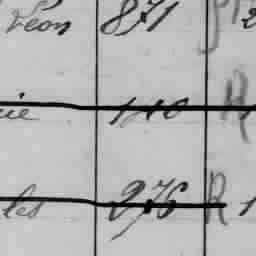 Léon 871
ie 140 R
les 276 R 1